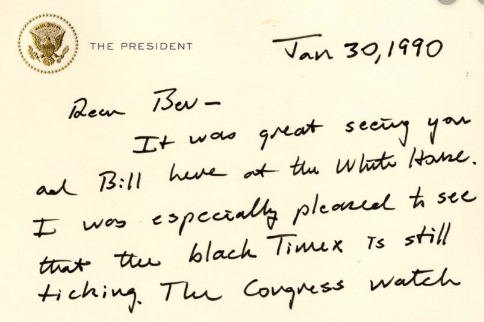 THE PRESIDENT
Jan 30, 1990
Dear Bev —
It was great seeing you
and Bill here at the White House.
I was especially pleased to see
that the black Timex is still
ticking. The Congress watch